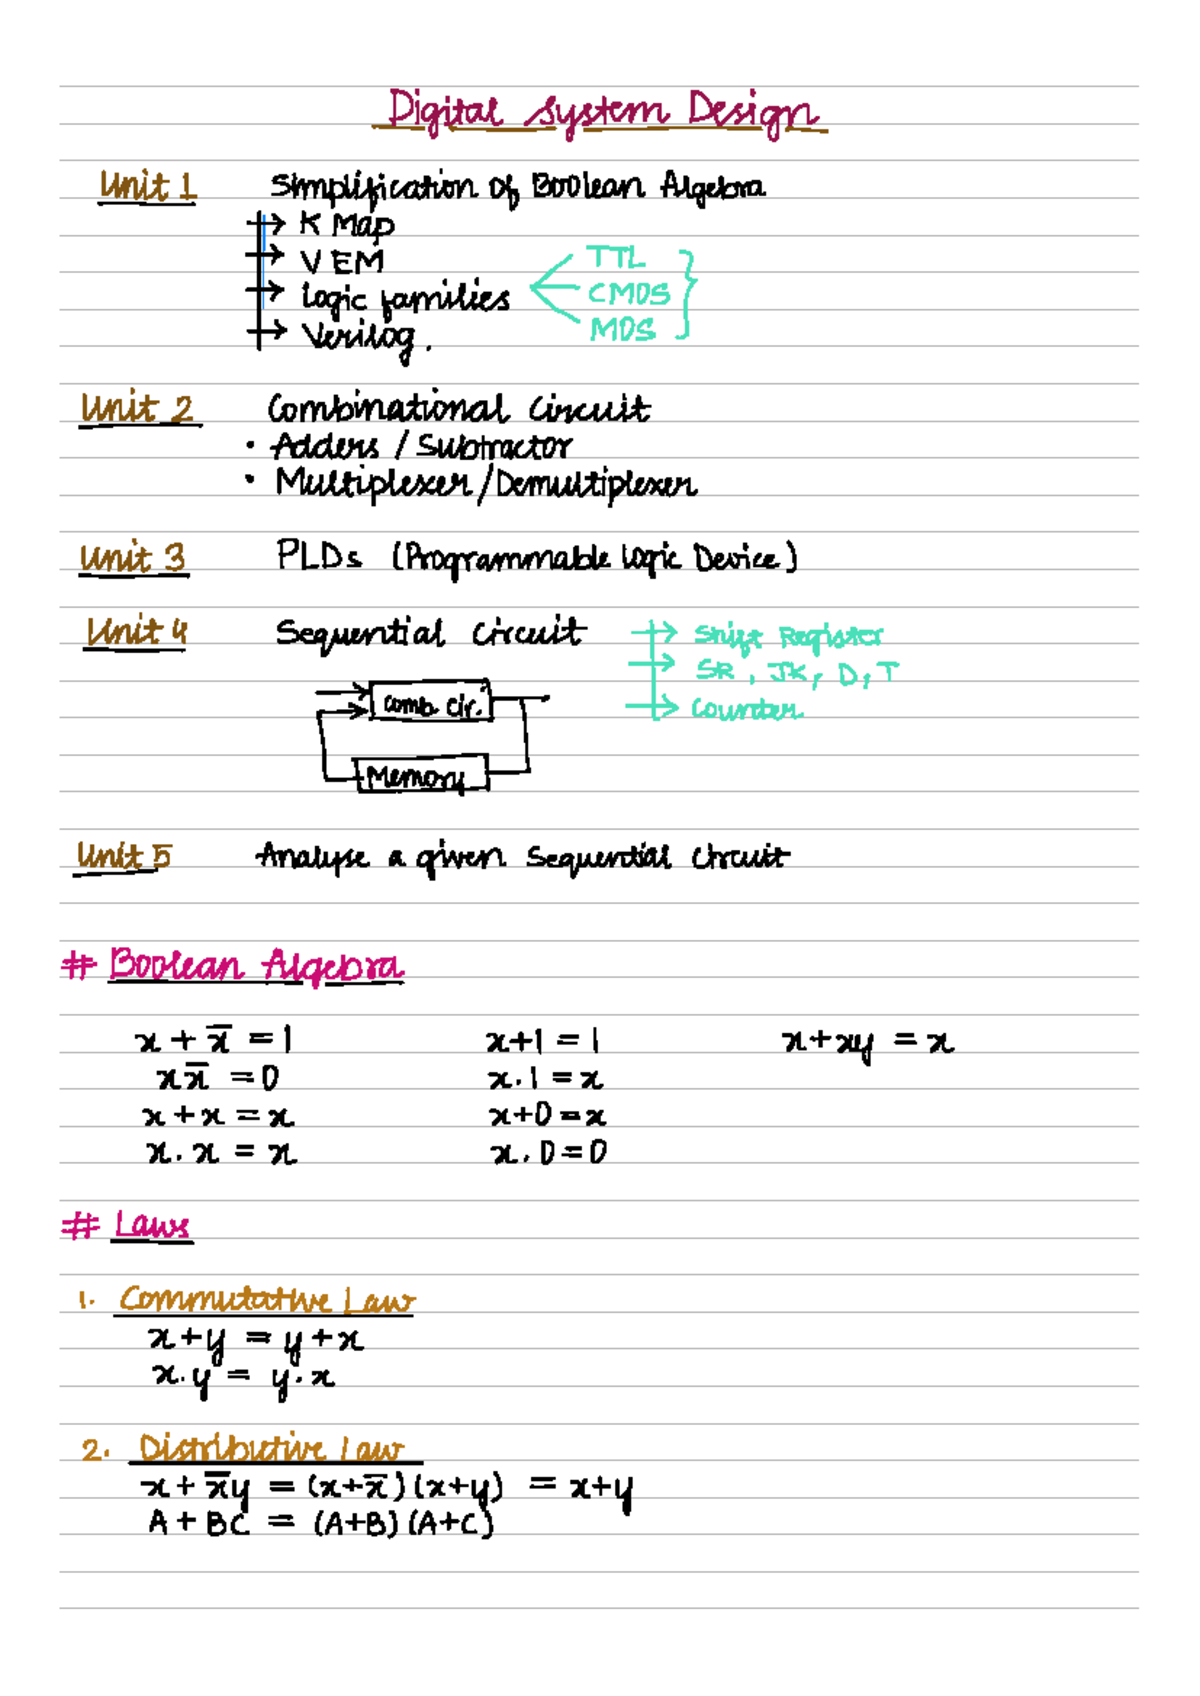 Digital System Design
Unit 1 Simplification of Boolean Algebra
→ K Map
→ VEM
→ Logic families
TTL
CMOS
MOS
→ Verilog.
Unit 2 Combinational Circuit
• Adders / Subtractor
• Multiplexer / Demultiplexer
Unit 3 PLDs (Programmable Logic Device)
Unit 4 Sequential Circuit
→ Shift Register
→ SR, JK, D, T
→ Counter
Comb. Cir.
Memory
Unit 5 Analyse a given Sequential Circuit
# Boolean Algebra
x + x̅ = 1 x+1 = 1 x+xy = x
x x̅ = 0 x.1 = x
x + x = x x+0 = x
x. x = x x. 0 = 0
# Laws
1. Commutative Law
x+y = y+x
x.y = y.x
2. Distributive Law
x + x̅y = (x+x̅)(x+y) = x+y
A + BC = (A+B)(A+C)